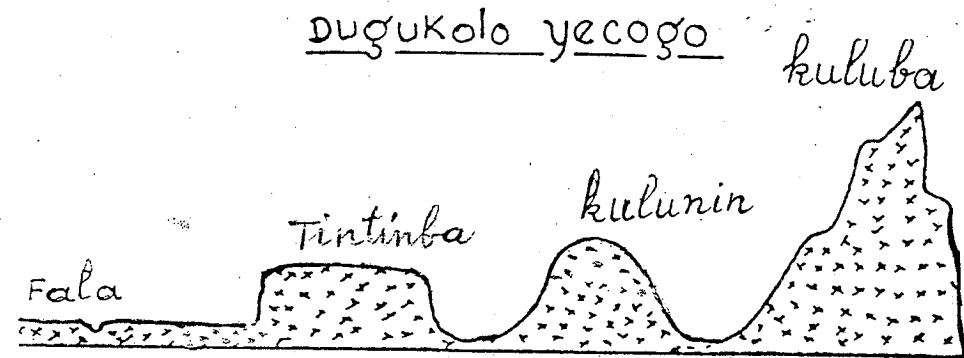 Dugukolo yecogo
kuluba
kulunin
Tintinba
Fala